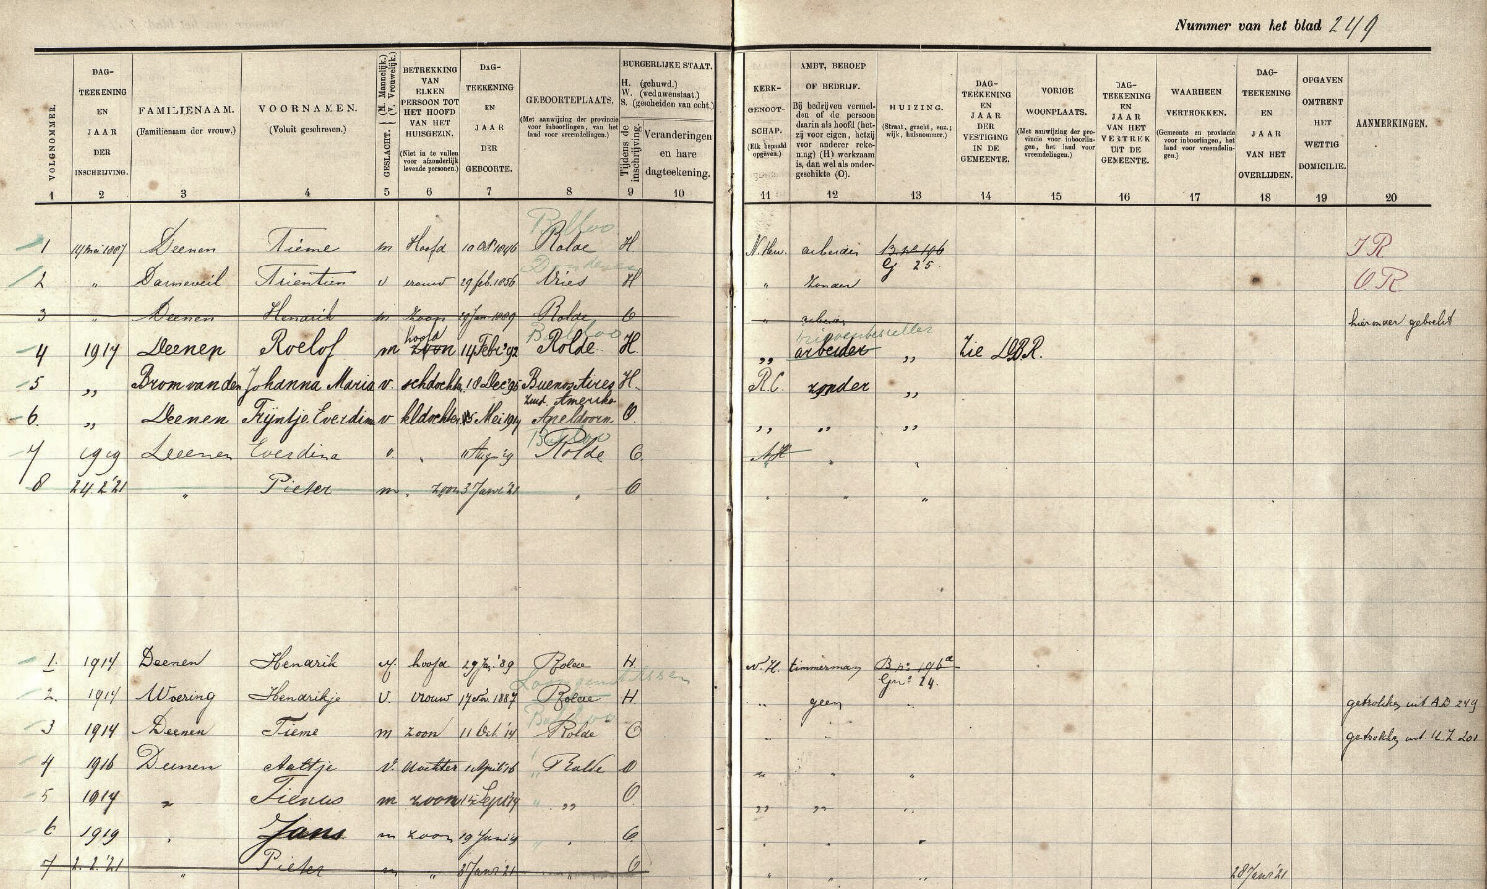 Nummer van het blad 249
VOLGNOMMER.
DAG-TEEKENING EN JAAR DER INSCHRIJVING.
FAMILIENAAM. (Familienaam der vrouw.)
VOORNAMEN. (Voluit geschreven.)
GESLACHT. (M. Mannelijk.) (v. Vrouwelijk.)
BETREKKING VAN ELKEN PERSOON TOT HET HOOFD VAN HET HUISGEZIN. (Niet in te vullen voor afzonderlijk levende personen.)
DAG-TEEKENING EN JAAR DER GEBOORTE.
GEBOORTEPLAATS. (Met aanwijzing der provincie voor inboorlingen, van het land voor vreemdelingen.)
BURGERLIJKE STAAT. H. (gehuwd.) W. (weduwenstaat.) S. (gescheiden van echt.)
Tijdens de inschrijving.
Veranderingen en hare dagteekening.
KERK-GENOOT-SCHAP. (Elk bepaald opgeven.)
AMBT, BEROEP OF BEDRIJF. Bij bedrijven vermelden of de persoon daarin als hoofd (hetzij voor eigen, hetzij voor anderer rekening) (H) werkzaam is, dan wel als ondergeschikte (O).
HUIZING. (Straat, gracht, enz.; wijk, huisnommer.)
DAG-TEEKENING EN JAAR DER VESTIGING IN DE GEMEENTE.
VORIGE WOONPLAATS. (Met aanwijzing der provincie voor inboorlingen, het land voor vreemdelingen.)
DAG-TEEKENING EN JAAR VAN HET VERTREK UIT DE GEMEENTE.
WAARHEEN VERTROKKEN. (Gemeente en provincie voor inboorlingen, het land voor vreemdelingen.)
DAG-TEEKENING EN JAAR VAN HET OVERLIJDEN.
OPGAVEN OMTRENT HET WETTIG DOMICILIE.
AANMERKINGEN.
1 2 3 4 5 6 7 8 9 10 11 12 13 14 15 16 17 18 19 20
Balloo
1 Deenen Tieme m Hoofd Rolde H N. Herv. arbeider J R
G 25
2 " v vrouw 29 feb. 1856 Vries H " Zonder O. R
3 " Deenen Hendrik m zoon Rolde O " hierover geboekt
Balloo
hoofd
4 1917 Deenen Roelof m zoon 14 Febr '92 Rolde. H. ,, arbeider ,, Zie
5 ,, Brom van den Johanna Maria v. schdochter 18 Dec '95 Buenos Aires H. R.C. zonder ,,
Zuid Amerika
6. ,, Deenen Trijntje Everdina v kldochter 15 Mei 1917 Apeldoorn O. ,, ,, ,,
Balloo
7 1919 Deenen Everdina v. Aug '19 Rolde O. NH " "
8 24.2.'21 " Pieter m zoon 3 Janr '21 " O " " "
1. 1917 Deenen Hendrik hoofd 29 Jan. '89 Rolde H. N.H. timmerman
24.
2. 1917 Woering Hendrikje V. vrouw 17 Nov 1887 Rolde H " geen " getrokken uit A.D 249
Balloo
3 1917 Deenen Tieme m zoon 11 Oct. '14 Rolde O getrokken uit
4 1916 Deenen Aaltje V. dochter 1 April '16 Rolde O " "
5 1917 " Tienus m zoon ,, O. ,, ,,
6 1919 " Jans m zoon 19 O. " "
7 2.2.'21 " Pieter m " 3 Janr '21 " O " " 28 Janr '21